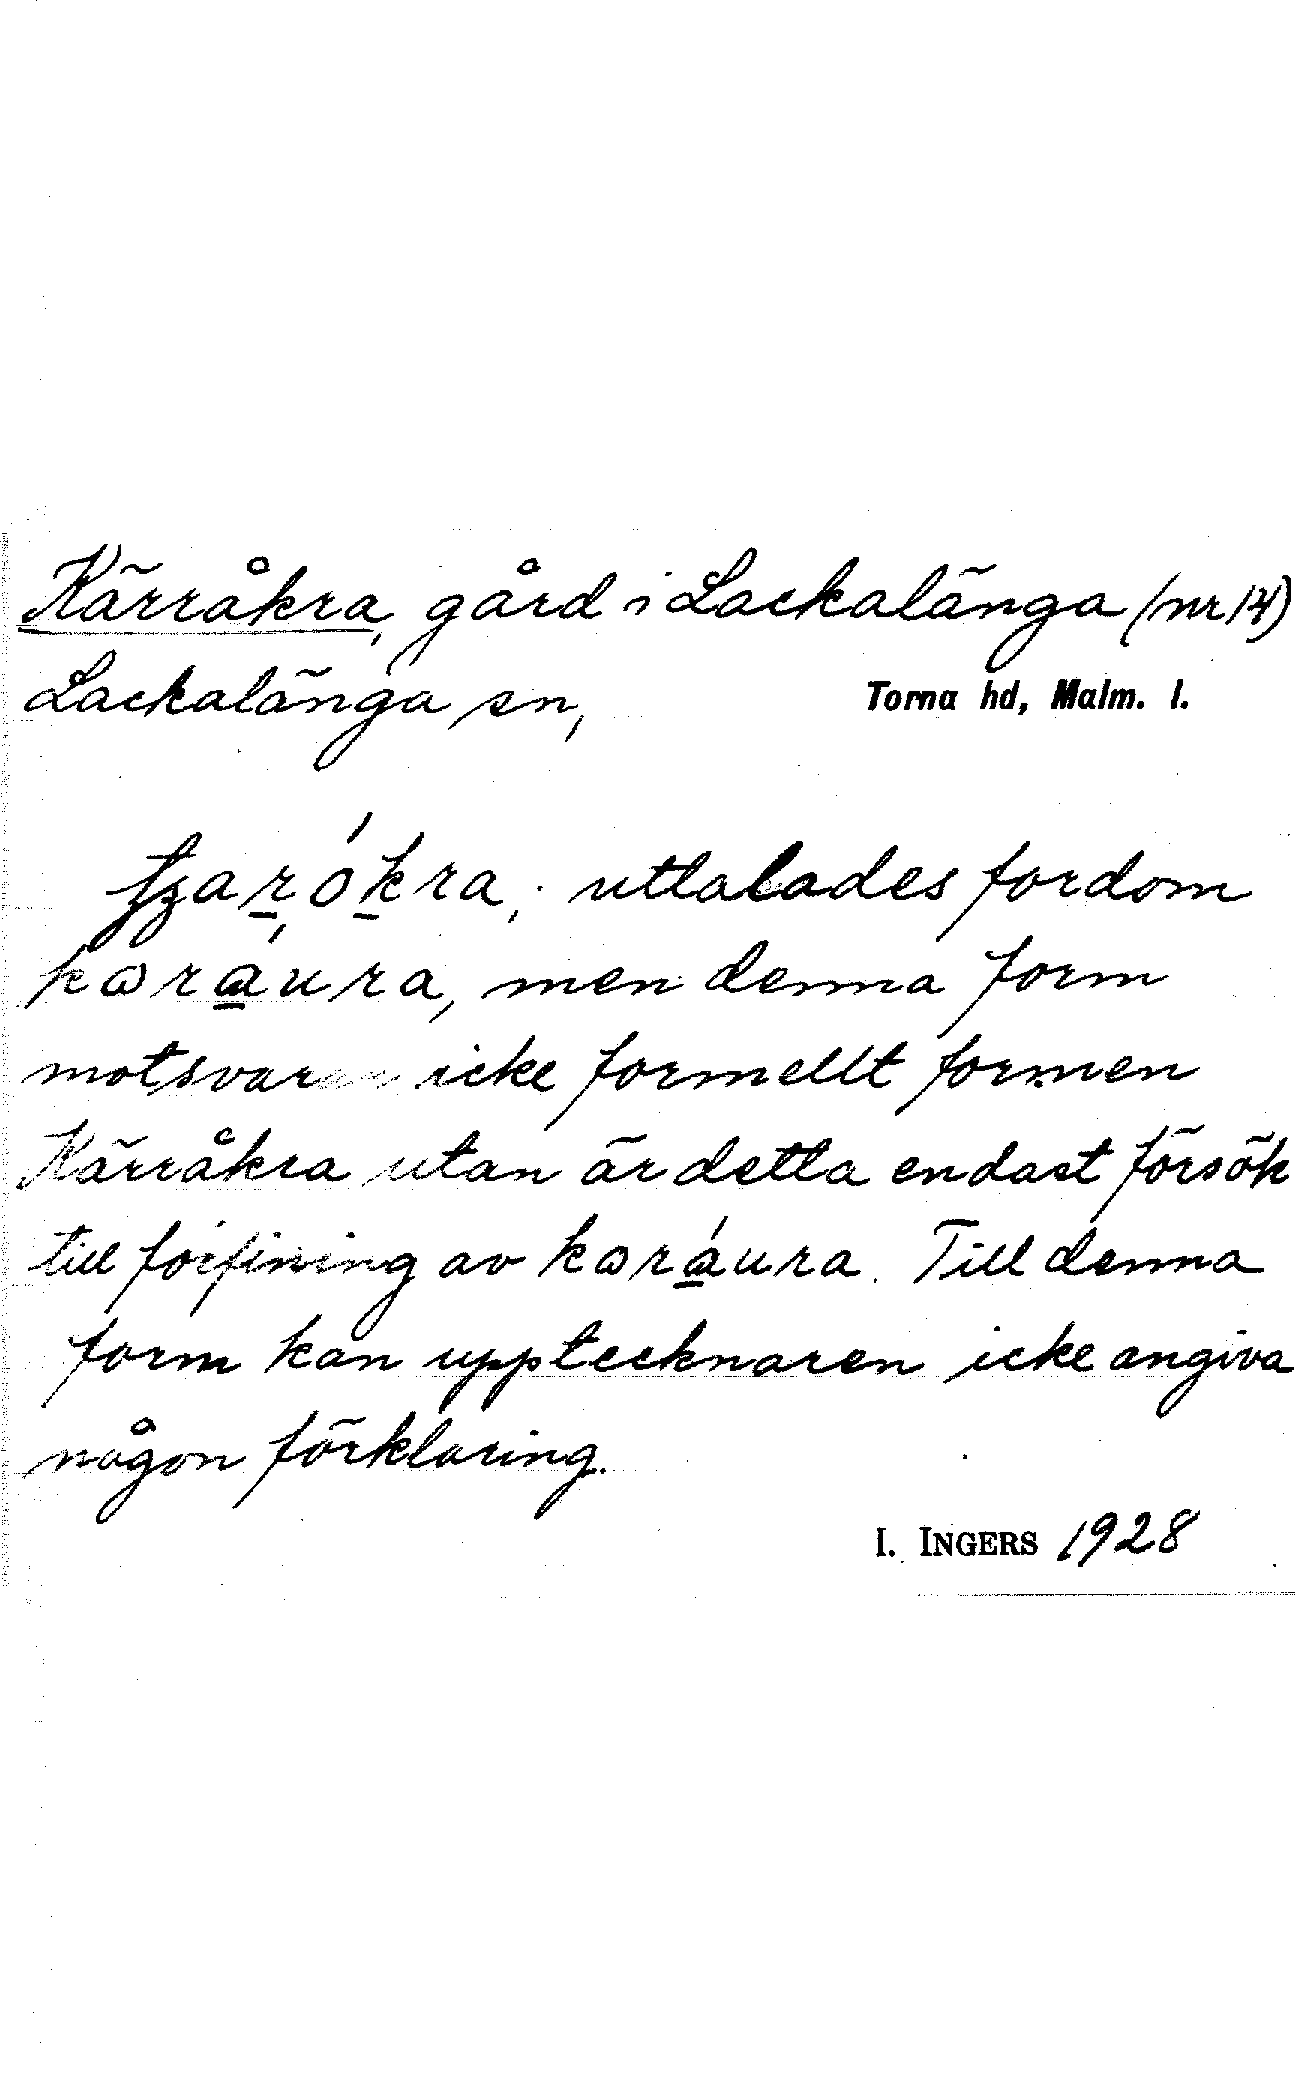 Kärråkra, gård i Lackalänga (nr 14)
Lackalänga sn, Torna hd, Malm. l.
ꞩaṟóḵra; uttalades fordom
kɷrá̱ura, men denna form
motsvarar icke formellt formen
Kärråkra utan är detta endast försök
till förfining av kɷrá̱ura. Till denna
form kan upptecknaren icke angiva
någon förklaring.
I. INGERS 1928